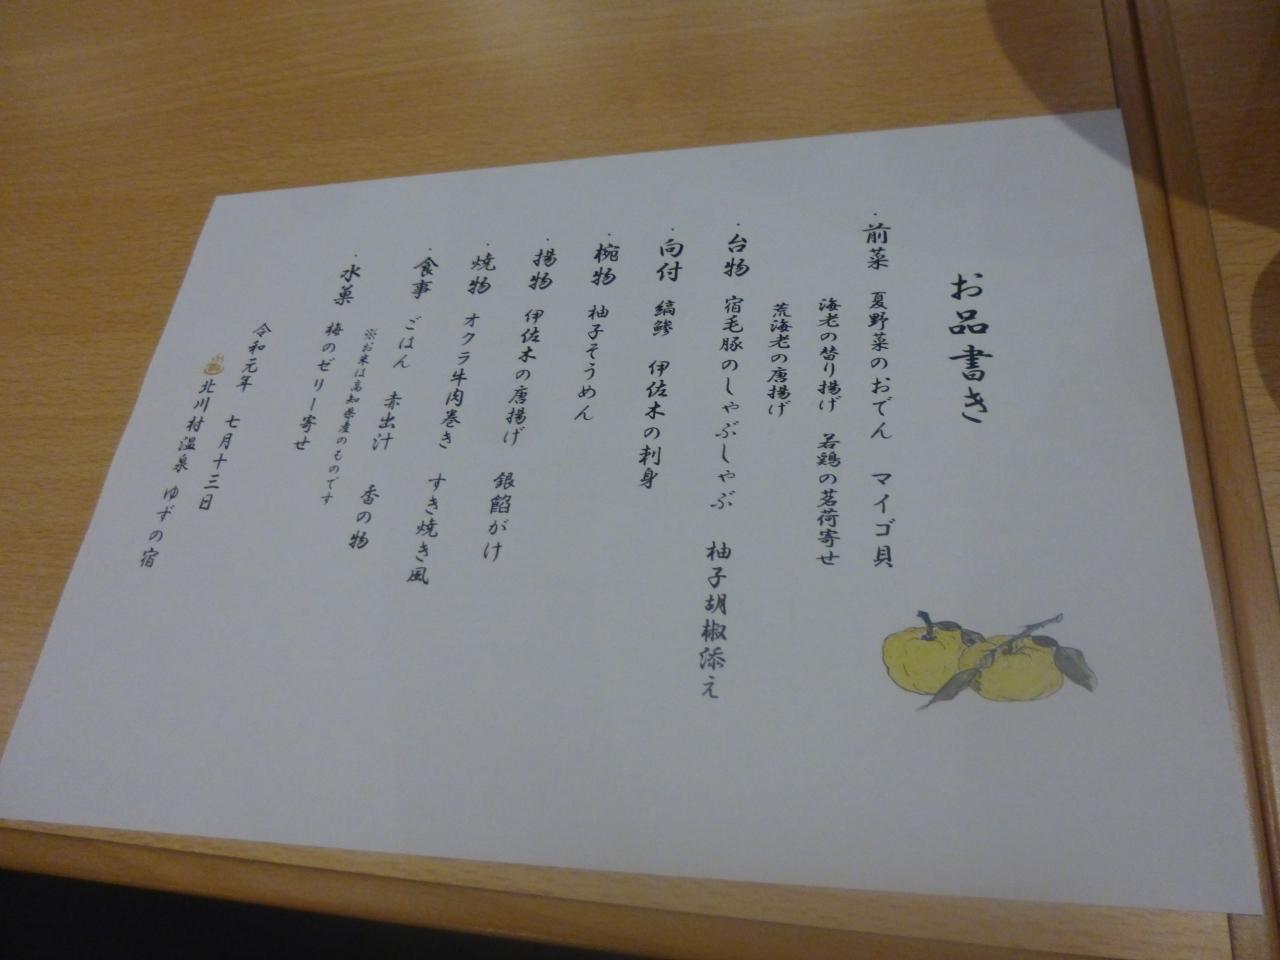 お品書き
・前菜 夏野菜のおでん マイゴ貝
海老の替り揚げ 若鶏の茗荷寄せ
荒海老の唐揚げ
・台物 宿毛豚のしゃぶしゃぶ 柚子胡椒添え
・向付 縞鯵 伊佐木の刺身
・椀物 柚子そうめん
・揚物 伊佐木の唐揚げ 銀餡がけ
・焼物 オクラ牛肉巻き すき焼き風
・食事 ごはん 赤出汁 香の物
※お米は高知県産のものです
・水菓 梅のゼリー寄せ
令和元年 七月十三日
♨北川村温泉 ゆずの宿